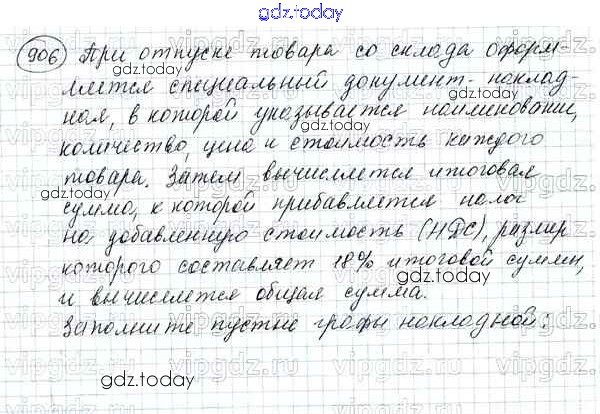 gdz.today
906 При отпуске товара со склада оформ-
gdz.today
ляется специальный документ - наклад-
ная, в которой указывается наименование,
gdz.today
количество, цена и стоимость каждого
товара. Затем вычисляется итоговая
gdz.today
сумма, к которой прибавляется налог
на добавленную стоимость (НДС), размер
которого составляет 18% итоговой суммы,
gdz.today
и вычисляется общая сумма.
Заполните пустые графы накладной:
gdz.today